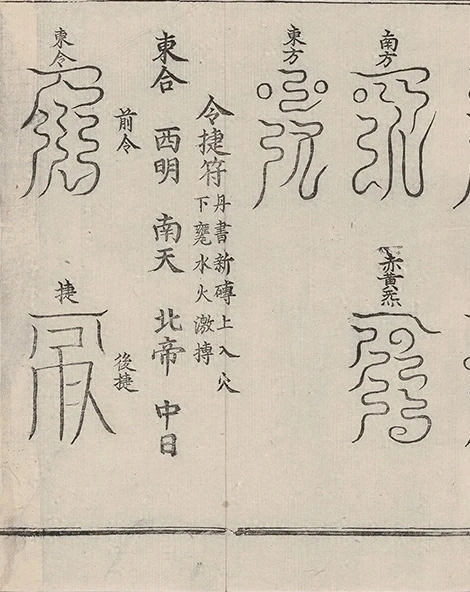 南方
赤黃炁
東方
令捷符
丹書新磚上入穴
下水火激搏
東合 西明 南天 北帝 中日
前令
後捷
東令
捷